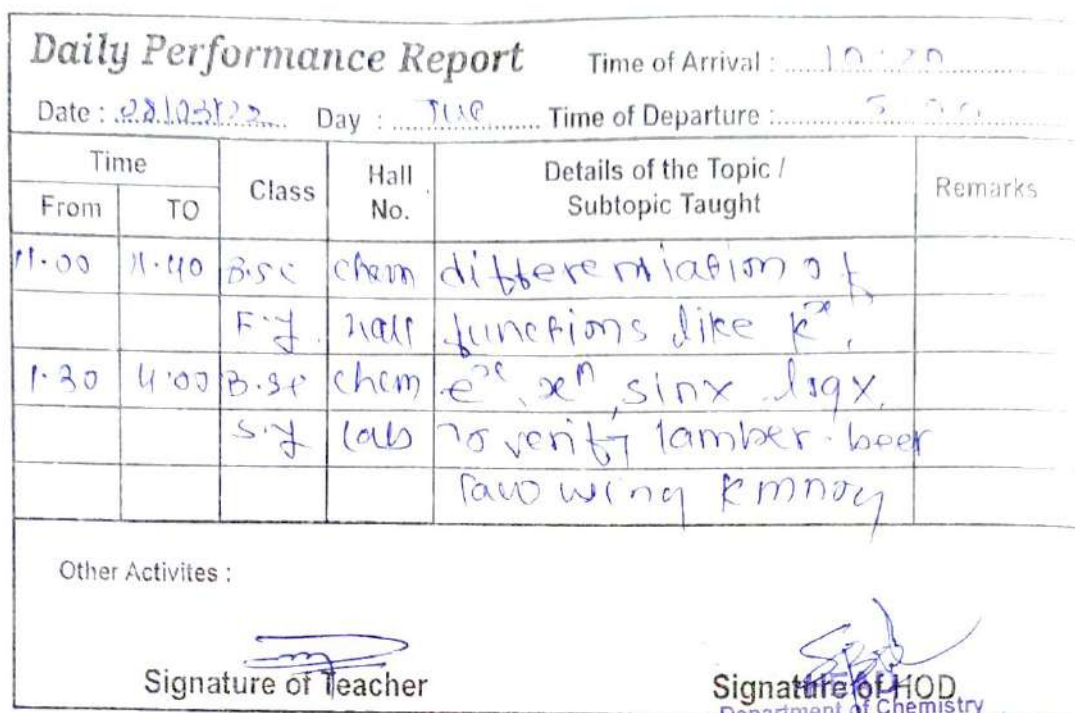 Daily Performance Report Time of Arrival : 10.20
Date : Day : Tue Time of Departure :
Time Class Hall No. Details of the Topic / Subtopic Taught Remarks
From TO
11.00 11.40 B.Sc chem differentiation of
F.Y. Hall functions like k^x,
1.30 4.00 B.Sc chem e^x, x^n, sinx logx.
S.Y lab To verify lamber-beer
law using kmno4
Other Activites :
Signature of Teacher Signature of HOD
HEAD
Department of Chemistry